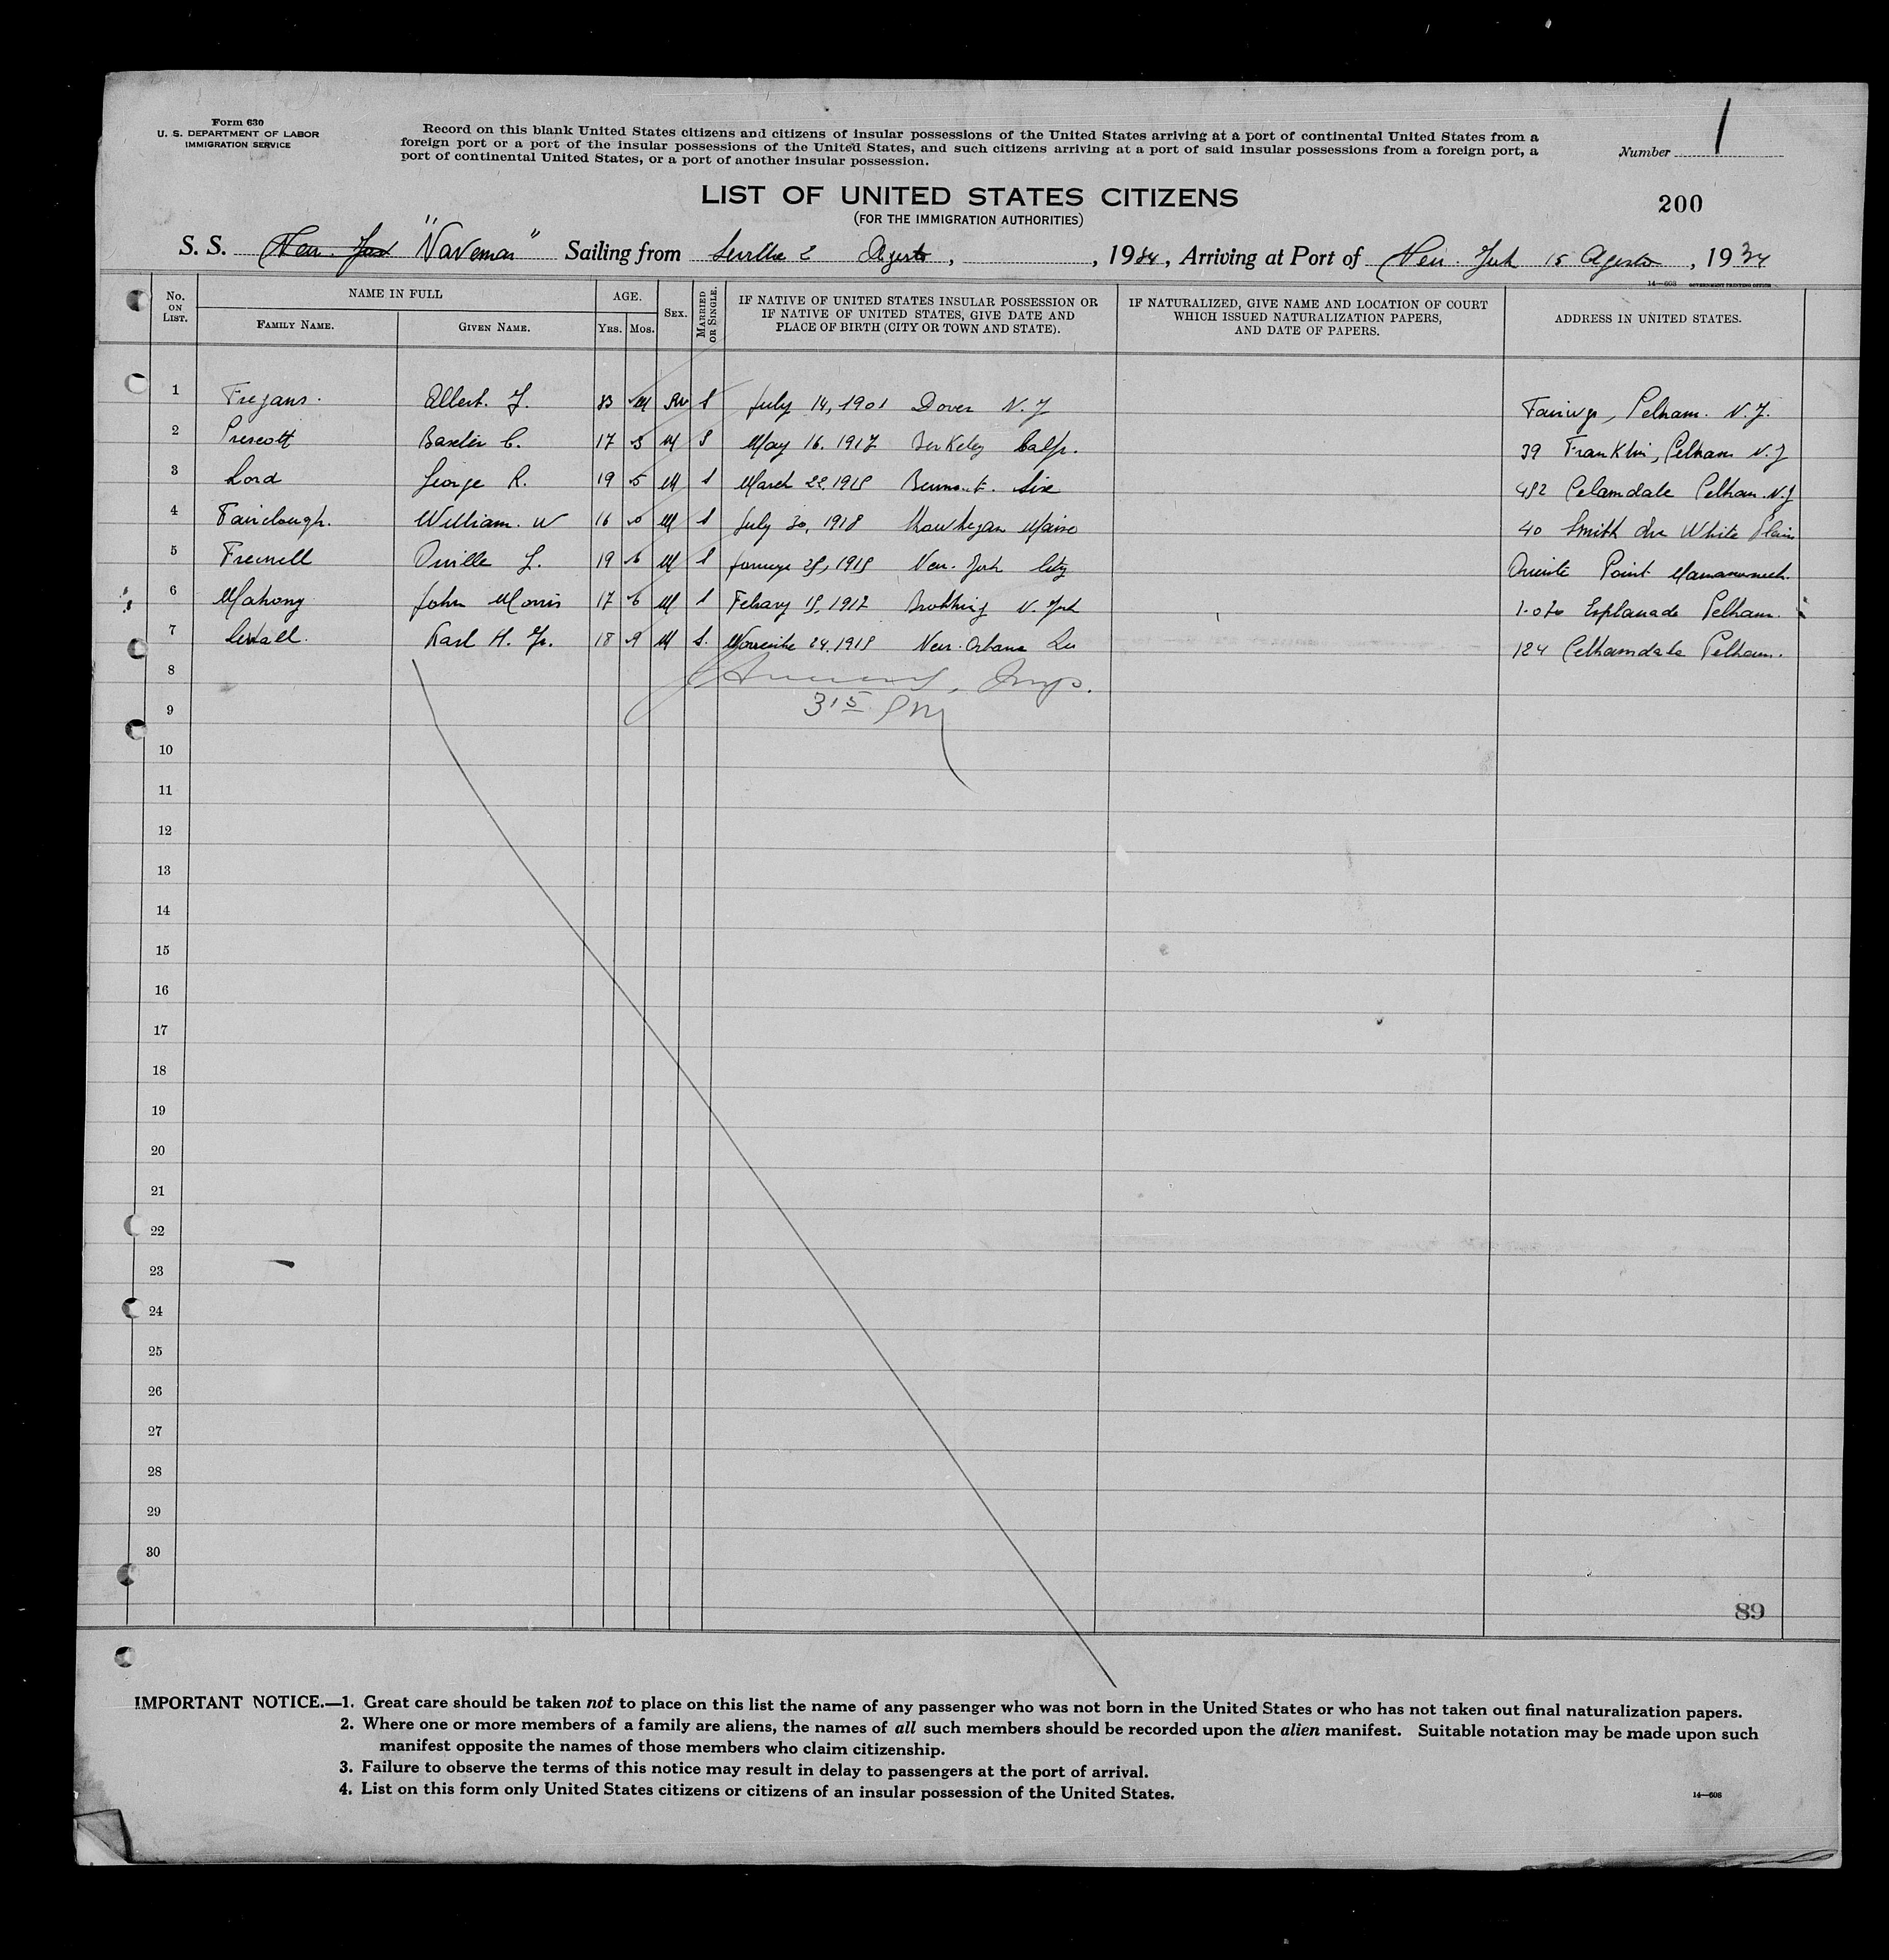 Form 630
U. S. DEPARTMENT OF LABOR
IMMIGRATION SERVICE
Record on this blank United States citizens and citizens of insular possessions of the United States arriving at a port of continental United States from a
foreign port or a port of the insular possessions of the United States, and such citizens arriving at a port of said insular possessions from a foreign port, a
port of continental United States, or a port of another insular possession.
Number 1
LIST OF UNITED STATES CITIZENS
(FOR THE IMMIGRATION AUTHORITIES)
200
S. S. "Navemar" Sailing from 2 Agosto, , 1934, Arriving at Port of New. York 15 Agosto, 1934
14—608 GOVERNMENT PRINTING OFFICE
No. ON LIST.
NAME IN FULL
FAMILY NAME.
GIVEN NAME.
AGE.
YRS. MOS.
SEX.
MARRIED OR SINGLE.
IF NATIVE OF UNITED STATES INSULAR POSSESSION OR
IF NATIVE OF UNITED STATES, GIVE DATE AND
PLACE OF BIRTH (CITY OR TOWN AND STATE).
IF NATURALIZED, GIVE NAME AND LOCATION OF COURT
WHICH ISSUED NATURALIZATION PAPERS,
AND DATE OF PAPERS.
ADDRESS IN UNITED STATES.
1 Albert. J. 33 S July 14, 1901 Dover N. J Pelham. N. J.
2 Prescott C. 17 3 M S May 16. 1917 Berkeley Calf. 39 Franklin, Pelham N. J
3 Lord George R. 19 5 M S March 22, 1915 482 Pelham. N. J
4 Fairclough. William. W 16 0 M S July 30, 1918 40 Smith Ave White Plain
5 19 6 M S 1915 New. York City Point
6 Mahony John Morris 17 6 M S N. York Esplanade Pelham.
7 Karl H. Jr. 18 9 M S. 24, 1915 124 Pelhamdale Pelham.
8 Insp.
9 3 15 PM
10
11
12
13
14
15
16
17
18
19
20
21
22
23
24
25
26
27
28
29
30
89
IMPORTANT NOTICE.—1. Great care should be taken not to place on this list the name of any passenger who was not born in the United States or who has not taken out final naturalization papers.
2. Where one or more members of a family are aliens, the names of all such members should be recorded upon the alien manifest. Suitable notation may be made upon such
manifest opposite the names of those members who claim citizenship.
3. Failure to observe the terms of this notice may result in delay to passengers at the port of arrival.
4. List on this form only United States citizens or citizens of an insular possession of the United States.
14—608